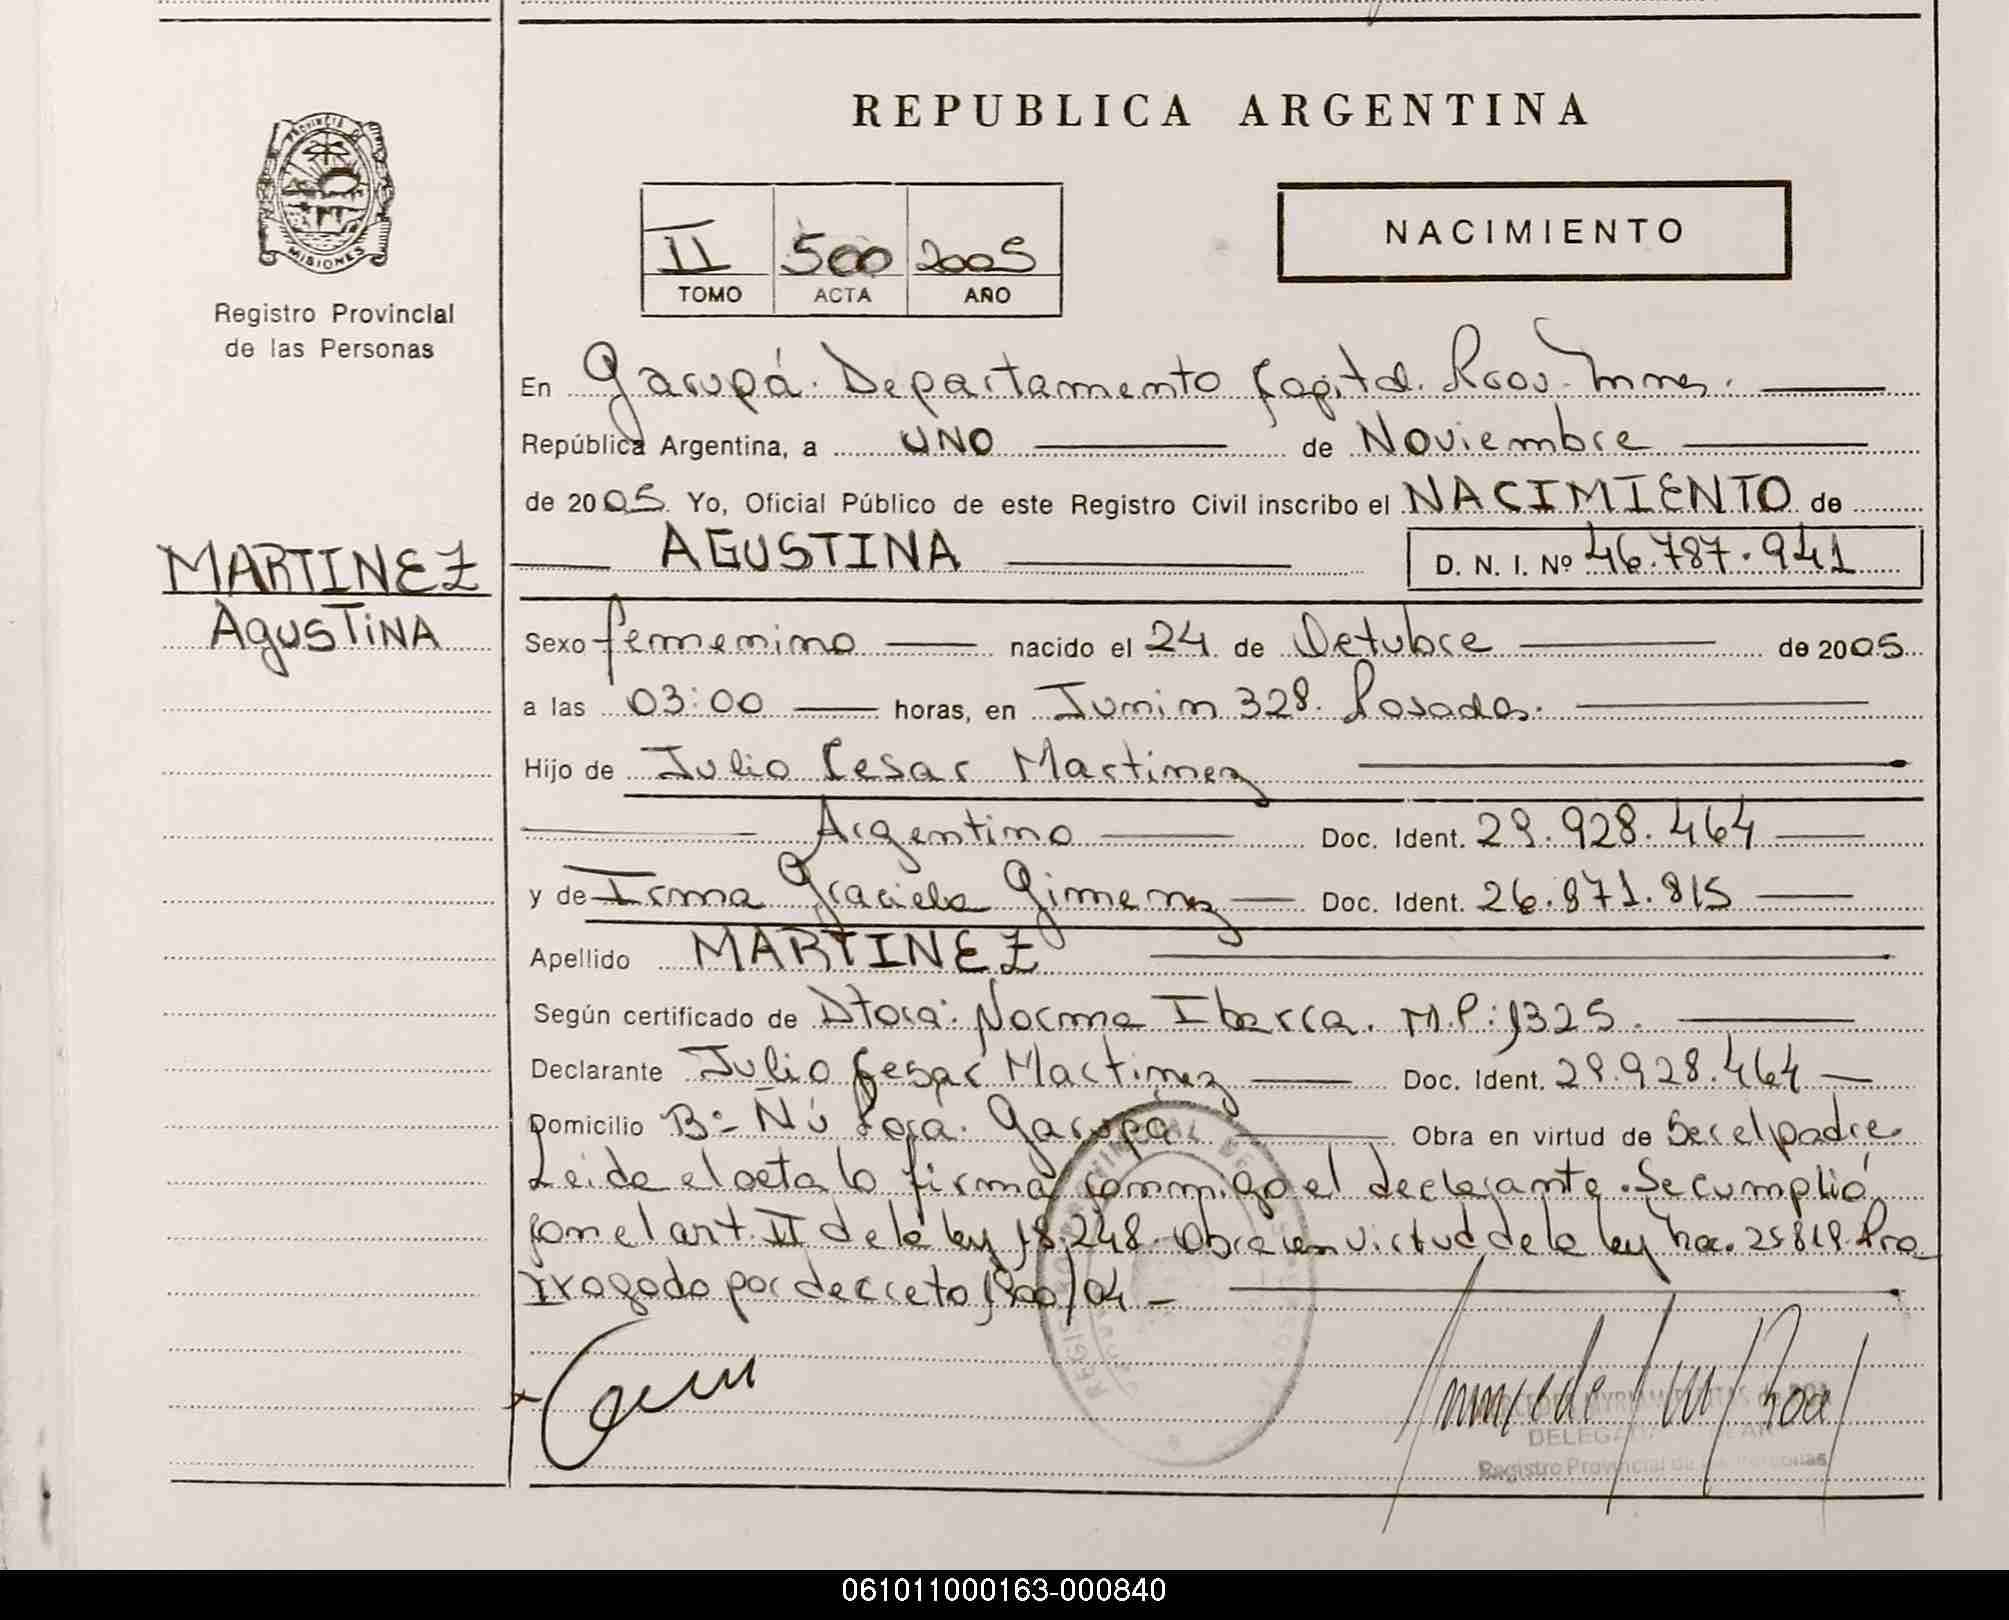 REPUBLICA ARGENTINA
PROVINCIA DE
MISIONES
Registro Provincial
de las Personas
II 500 2005
TOMO ACTA AÑO
NACIMIENTO
En Garupá. Departamento Capital. Prov. Mnes.
República Argentina, a UNO de Noviembre
de 2005. Yo, Oficial Público de este Registro Civil inscribo el NACIMIENTO de
MARTINEZ
Agustina
AGUSTINA D. N. I. Nº 46.787.941
Sexo femenino nacido el 24 de Octubre de 2005
a las 03:00 horas, en Junin 328. Posadas.
Hijo de Julio Cesar Martinez
Argentino Doc. Ident. 29.928.464
y de Irma Graciela Gimenez Doc. Ident. 26.871.815
Apellido MARTINEZ
Según certificado de Dtora: Norma Ibarra. M.P: 1325.
Declarante Julio Cesar Martinez Doc. Ident. 29.928.464
Domicilio Bº Ñú Porá. Garupá Obra en virtud de Ser el padre
Leida el acta la firma conmigo el declarante. Se cumplió
con el art. II de la ley 18.248. Obra en virtud de la ley 25819 Pro
rrogado por decreto /04
DELEGADA
Registro Provincial de las Personas
061011000163-000840